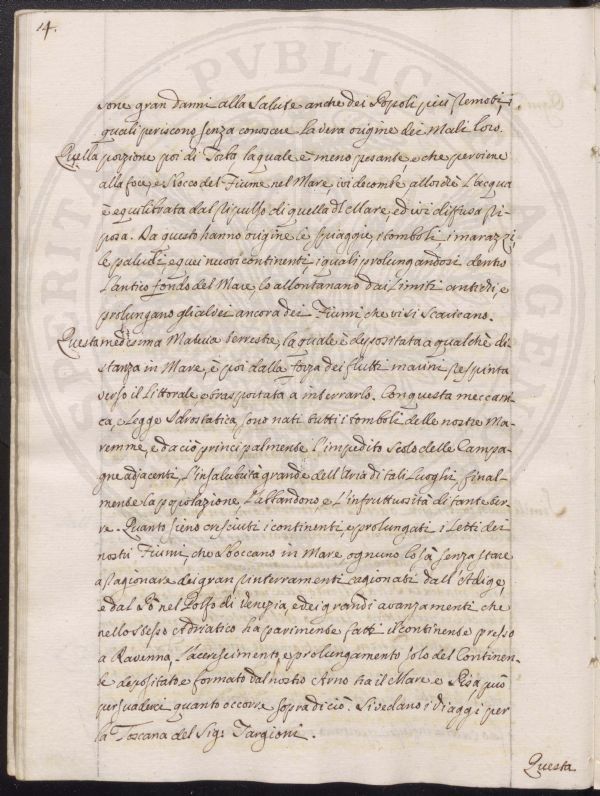 14.
sone gran danni alla Salute anche dei Popoli più remoti, i
quali periscono senza conoscere la vera origine dei Mali loro.
Quella porzione poi di Torba la quale è meno pesante, e che perviene
alla foce, e sbocco del Fiume nel Mare, ivi decombe allorchè L'acqua
è equilibrata dal ripulso di quella del Mare, ed ivi diffusa ri-
posa. Da questo hanno origine le spiaggie, i tomboli, i marazzi,
le paludi, e quei nuovi continenti, i quali prolungandosi dentro
L'antico fondo del Mare, lo allontanano dai Limiti antichi, e
prolungano gli alvei ancora dei Fiumi, che vi si scaricano.
Questa medesima Materia terrestre, la quale è depositata a qualche di-
stanza in Mare, è poi dalla forza dei flutti marini respinta
verso il Littorale, e trasportata a interrarlo. Con questa meccani-
ca, e Legge Idrostatica sono nati tutti i tomboli delle nostre Ma-
remme, e da ciò principalmente l'impedito scolo delle Campa-
gne adjacenti, L'insalubrità grande dell'Aria di tali Luoghi, final-
mente la spopolazione, L'abbandono, e L'infruttuosità di tante ter-
re. Quanto sieno cresciuti i continenti, e prolungati i Letti dei
nostri Fiumi, che sboccano in Mare, ognuno lo sà senza stare
a ragionare dei gran rinterramenti cagionati dall'Adige,
e dal Pò nel Golfo di Venezia, e dei grandi avanzamenti che
nello stesso Adriatico ha parimente fatti il continente presso
a Ravenna. L'accrescimento, e prolungamento solo del Continen-
te depositato, e formato dal nostro Arno tra il Mare e Pisa può
persuaderci quanto occorre sopra di ciò. Si vedano i Viaggi per
la Toscana del Sig: Targioni.
Questa